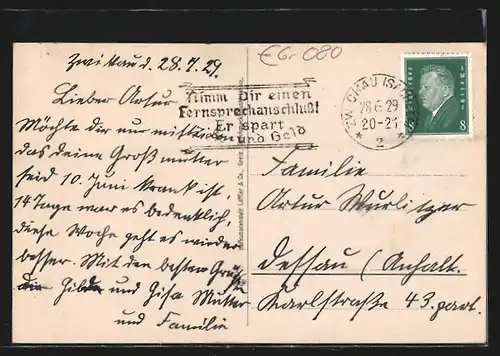 Zwickau d. 28.7.29.
Lieber Artur
Möchte dir nur mitteilen
das deine Großmutter
seid 10. Juni krank ist,
14 Tage war es bedenklich,
diese Woche geht es wieder
besser. Mit den besten Grüßen
Hilde und Gisa Mutter
und Familie
€Gr 080
Nimm Dir einen
Fernsprechanschluß!
Er spart
und Geld
ZWICKAU (SA
28.6.29
20-21
* 2 *
8
8
Familie
Artur Wurlitzer
Dessau (Anhalt.
Karlstraße 43. part.